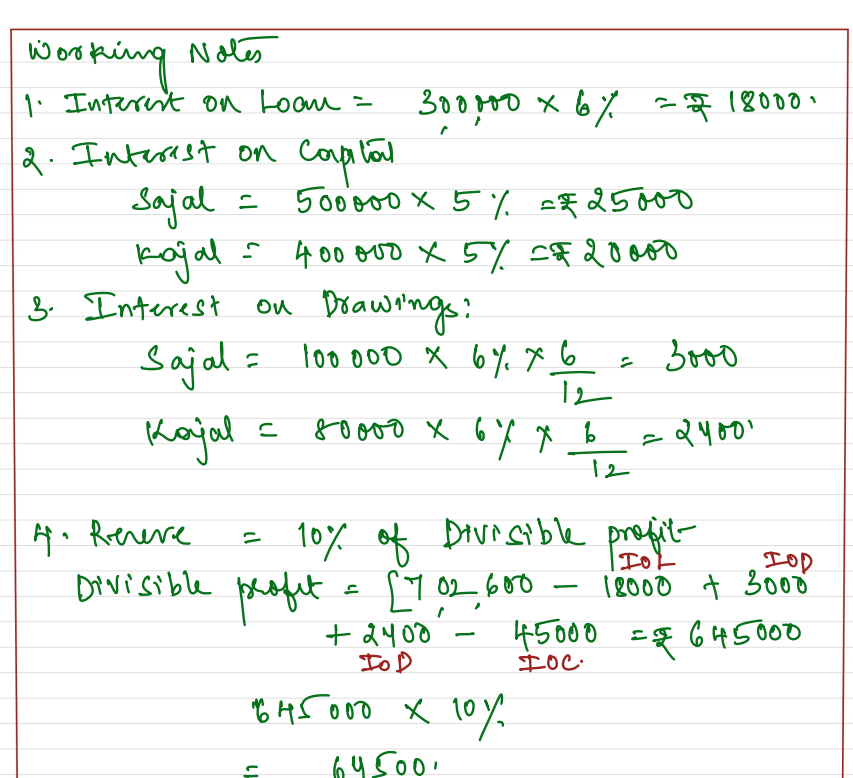 Working Notes
1. Interest on Loan = 300,000 × 6% = ₹ 18000.
2. Interest on Capital
Sajal = 500000 × 5% = ₹ 25000
Kajal = 400000 × 5% = ₹ 20000
3. Interest on Drawings:
Sajal = 100000 × 6% × 6/12 = 3000
Kajal = 80000 × 6% × 6/12 = 2400.
4. Reserve = 10% of Divisible profit
IOL IOD
Divisible profit = [7,02,600 – 18000 + 3000
+ 2400 – 45000 = ₹ 645000
IOD IOC.
645000 × 10%
= 64500.